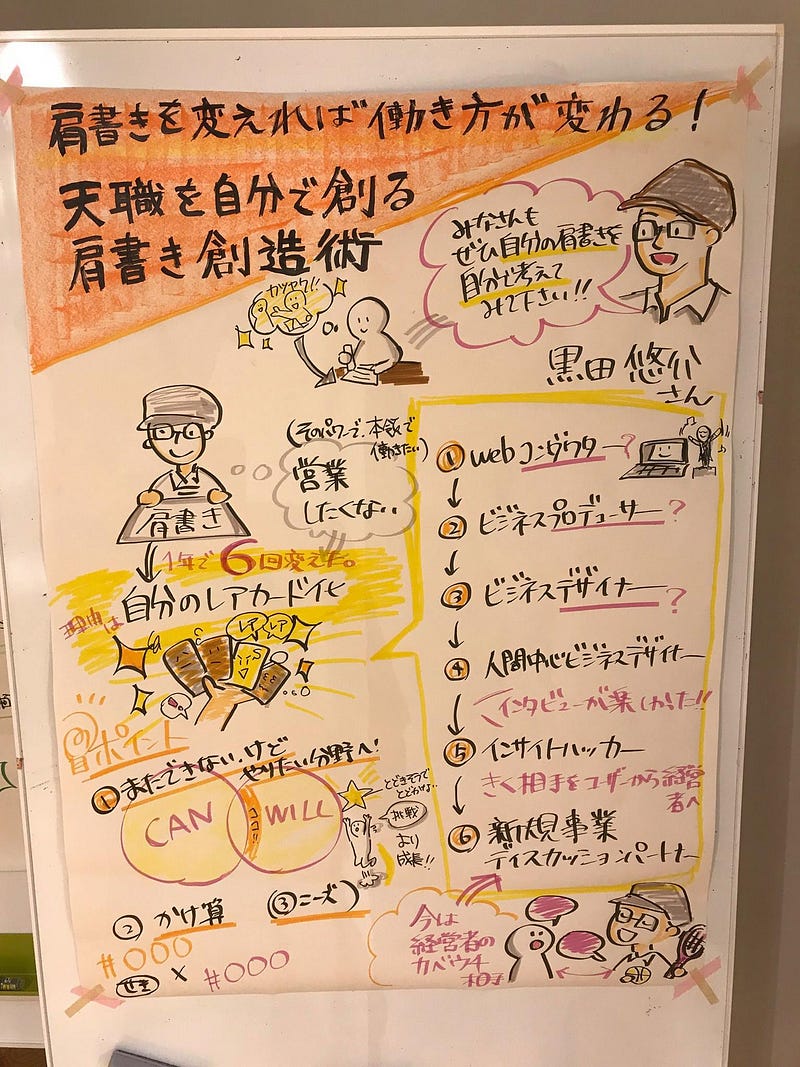 肩書きを変えれば働き方が変わる!
天職を自分で創る
肩書き創造術
みなさんも
ぜひ自分の肩書きを
自分で考えて
みて下さい!!
カツヤク!!
黒田悠介
さん
肩書き
(そのパワーで、本領で
働きたい)
営業
したくない
1年で6回変えた。
理由は
自分のレアカード化
レア
レア
ポイント
① まだできない、けど
やりたい分野へ!
CAN
ココ!!
WILL
とどきそうで
とどかない..
挑戦
より
成長!!
② かけ算
(③ニーズ)
#○○○
×
#○○○
① webコンダクター?
↓
② ビジネスプロデューサー?
↓
③ ビジネスデザイナー?
↓
④ 人間中心ビジネスデザイナー
↓
インタビューが楽しかった!!
⑤ インサイトハッカー
↓
きく相手をユーザーから経営
者へ
⑥ 新規事業
ディスカッションパートナー
今は
経営者の
カベウチ
相手